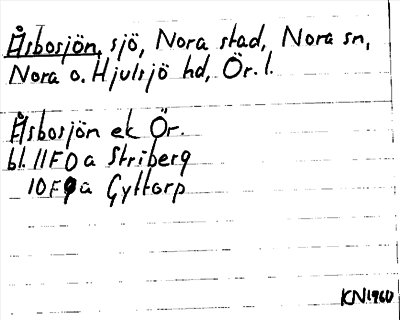 Ålsbosjön, sjö, Nora stad, Nora sn,
Nora o. Hjulsjö hd, Ör. l.
Ålsbosjön ek Ör.
bl. 11F0a Striberg
10F9a Gyttorp
KN1960